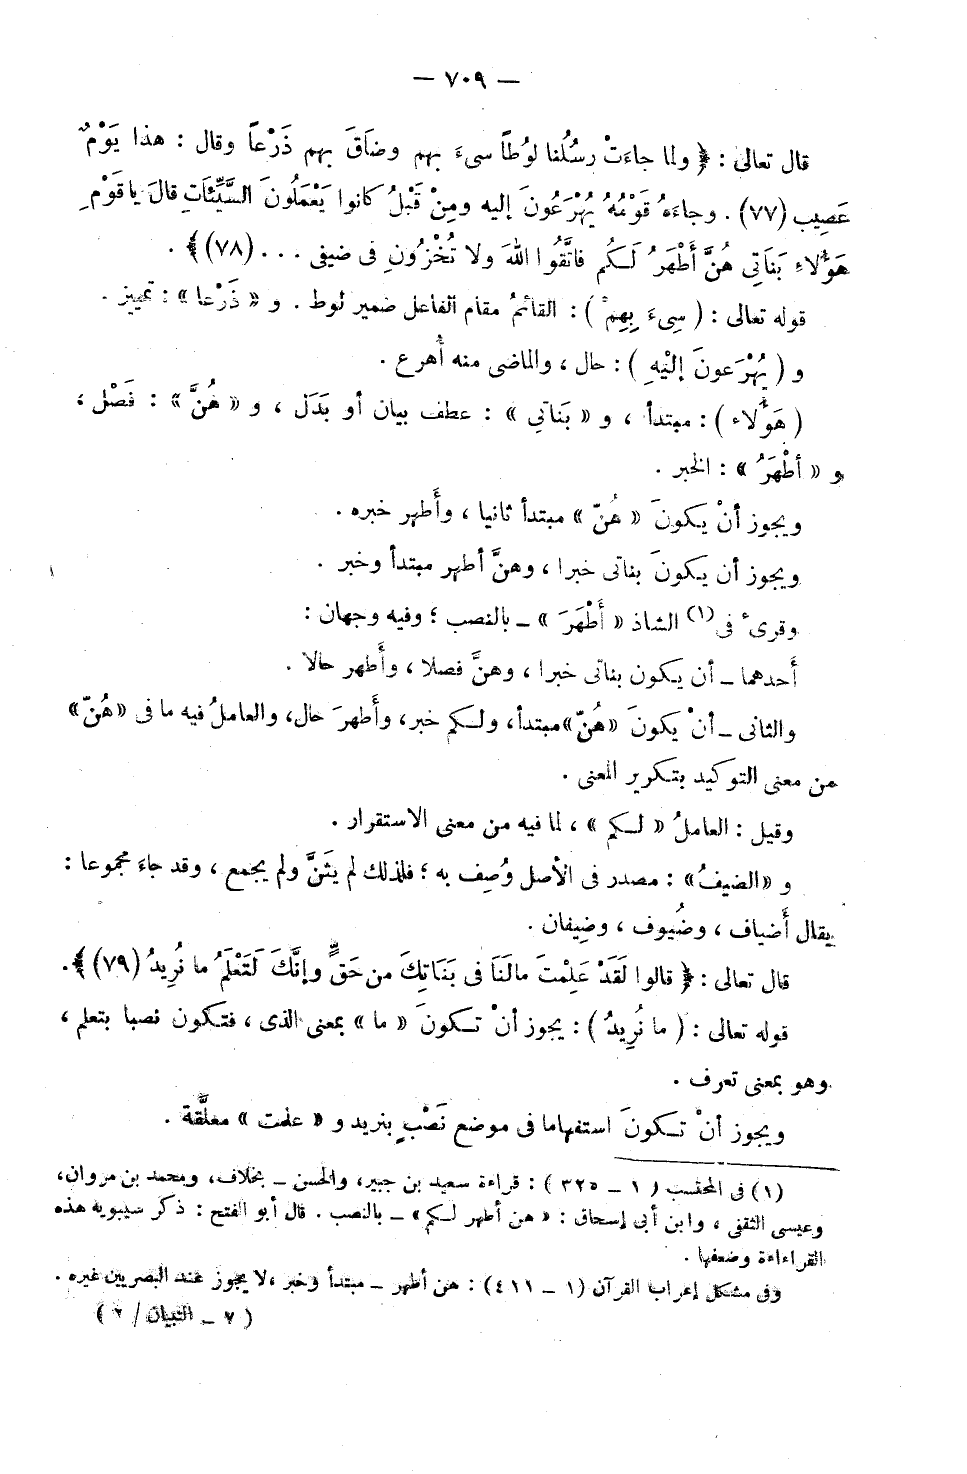 — ٧٠٩ —
قال تعالى : ﴿ ولما جاءَتْ رسُلُنا لوُطاً سىءَ بهم وضاَقَ بهم ذَرْعاً وقال : هذا يَوْمٌ
عَصِيب (٧٧) . وجاءَهُ قَوْمُهُ يُهْرَعُونَ إليه ومِنْ قَبْلُ كانوا يَعْمَلُونَ السَّيِّئَاتِ قالَ ياقَوْمِ
هَؤُلاءِ بَنَاتِي هُنَّ أَطْهَرُ لَكُم فاتَّقُوا اللهَ ولا تُخْزُونِ فى ضيفى . . . (٧٨)﴾ .
قوله تعالى : ( سِىءَ بِهِمْ ) : القائمُ مقام الفاعل ضمير لوط . و « ذَرْعا » : تمييز .
و ( يُهْرَعونَ إلَيْهِ ) : حال ، والماضى منه أُهرع .
( هَؤُلاء ) : مبتدأ ، و « بَناتِي » : عطف بيان أو بَدَل ، و « هُنَّ » : فَصْل ،
و « أطْهَرُ » : الخبر .
ويجوز أنْ يكونَ « هُنّ » مبتدأ ثانيا ، وأَطهر خبره .
ويجوز أن يكونَ بناتى خبرا ، وهنَّ أطهر مبتدأ وخبر .
وقرىء فى(١) الشاذ « أَطْهَرَ » ــ بالنصب ؛ وفيه وجهان :
أَحدهما ــ أن يكون بناتى خبرا ، وهنَّ فصلا ، وأَطهر حالا .
والثانى ــ أنْ يكونَ «هُنّ» مبتدأ، ولكم خبر، وأَطهرَ حال، والعاملُ فيه ما فى «هُنّ»
من معنى التوكيد بتكرير المعنى .
وقيل : العاملُ « لكم » ، لما فيه من معنى الاستقرار .
و «الضيفُ» : مصدر فى الأصل وُصِف به ؛ فلذلك لم يثَنَّ ولم يجمع ، وقد جاءَ مجموعا :
يقال أَضياف ، وضُيوف ، وضِيفان .
قال تعالى : ﴿ قالوا لَقَدْ عَلِمْتَ مالَنَا فى بَنَاتِكَ من حَقٍّ وإنَّكَ لَتَعْلَمُ ما نُرِيدُ (٧٩)﴾ .
قوله تعالى : ( ما نُرِيدُ ) : يجوز أنْ تكونَ « ما » بمعنى الذى ، فتكون نصبا بتعلم ،
وهو بمعنى تعرف .
ويجوز أنْ تكونَ استفهاما فى موضع نَصْبٍ بنريد و « علمت » معلَّقة .
(١) فى المحتسب ( ١ ــ ٣٢٥ ) : قراءة سعيد بن جبير، والحسن ــ بخلاف، ومحمد بن مروان،
وعيسى الثقفى ، وابن أبى إسحاق : « هن أطهر لكم» ــ بالنصب . قال أبو الفتح : ذكر سيبويه هذه
القراءاءة وضعفها .
وفى مشكل إعراب القرآن (١ ــ ٤١١) : هن أطهر ــ مبتدأ وخبر ، لا يجوز عند البصريين غيره .
( ٧ ــ التبيان / ٢ )